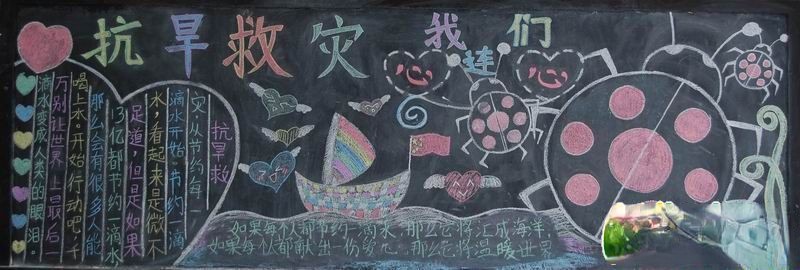 抗旱救灾 我们心连心
抗旱救
灾,从节约每一
滴水开始。节约一滴
水,看起来是微不
足道,但是如果
13亿都节约一滴水,
那么会有很多人能
喝上水。开始行动吧,千
万别让世界上最后一
滴水变成人类的眼泪。
如果每个人都节约一滴水,那么它将汇成海洋,
如果每个人都献出一份爱心,那么它将温暖世界